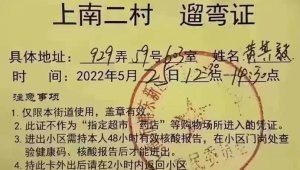 上南二村 遛弯证
具体地址: 929弄59号63室 姓名
时 间: 2022年5月25日12点-14:30点
注意事项
1. 仅限本街道使用,盖章有效。
2. 此证不作为“指定超市、药店”等购物场所进入的凭证。
3. 进出小区需持本人48小时有效核酸报告,在小区门岗处查
验健康码、核酸报告后才能进出。
4. 持此卡外出后请在2小时内返回小区